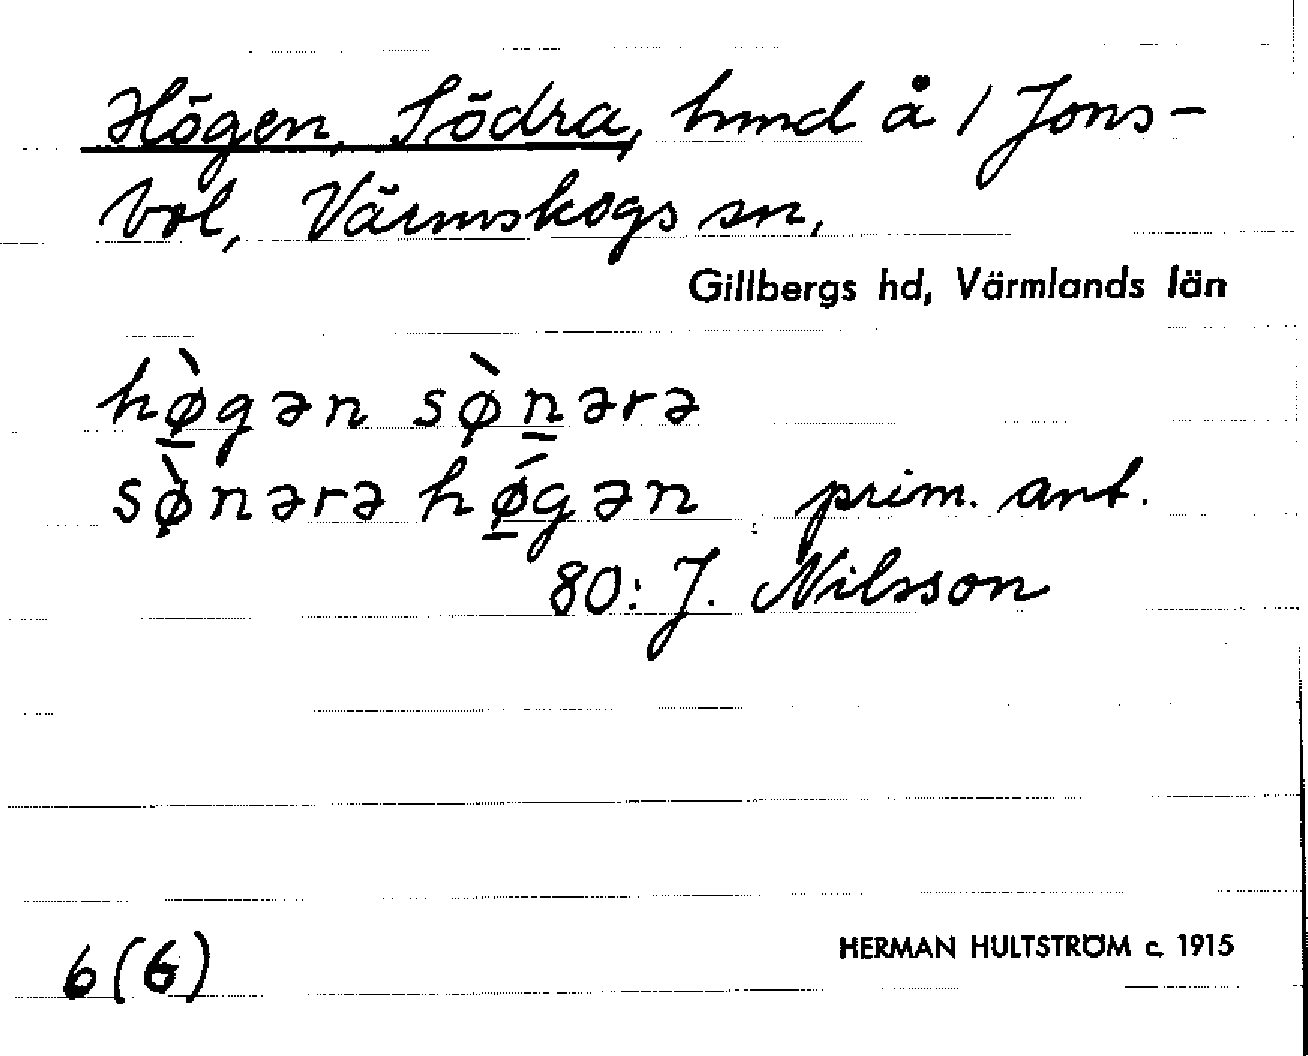 Högen, Södra, hmd å 1 Jons-
bol, Värmskogs sn,
Gillbergs hd, Värmlands län
hø̱̀gən sø̀ṉərə
sø̀nərə hǿ̱gən prim. ant.
80: J. Nilsson
6(6)
HERMAN HULTSTRÖM c. 1915